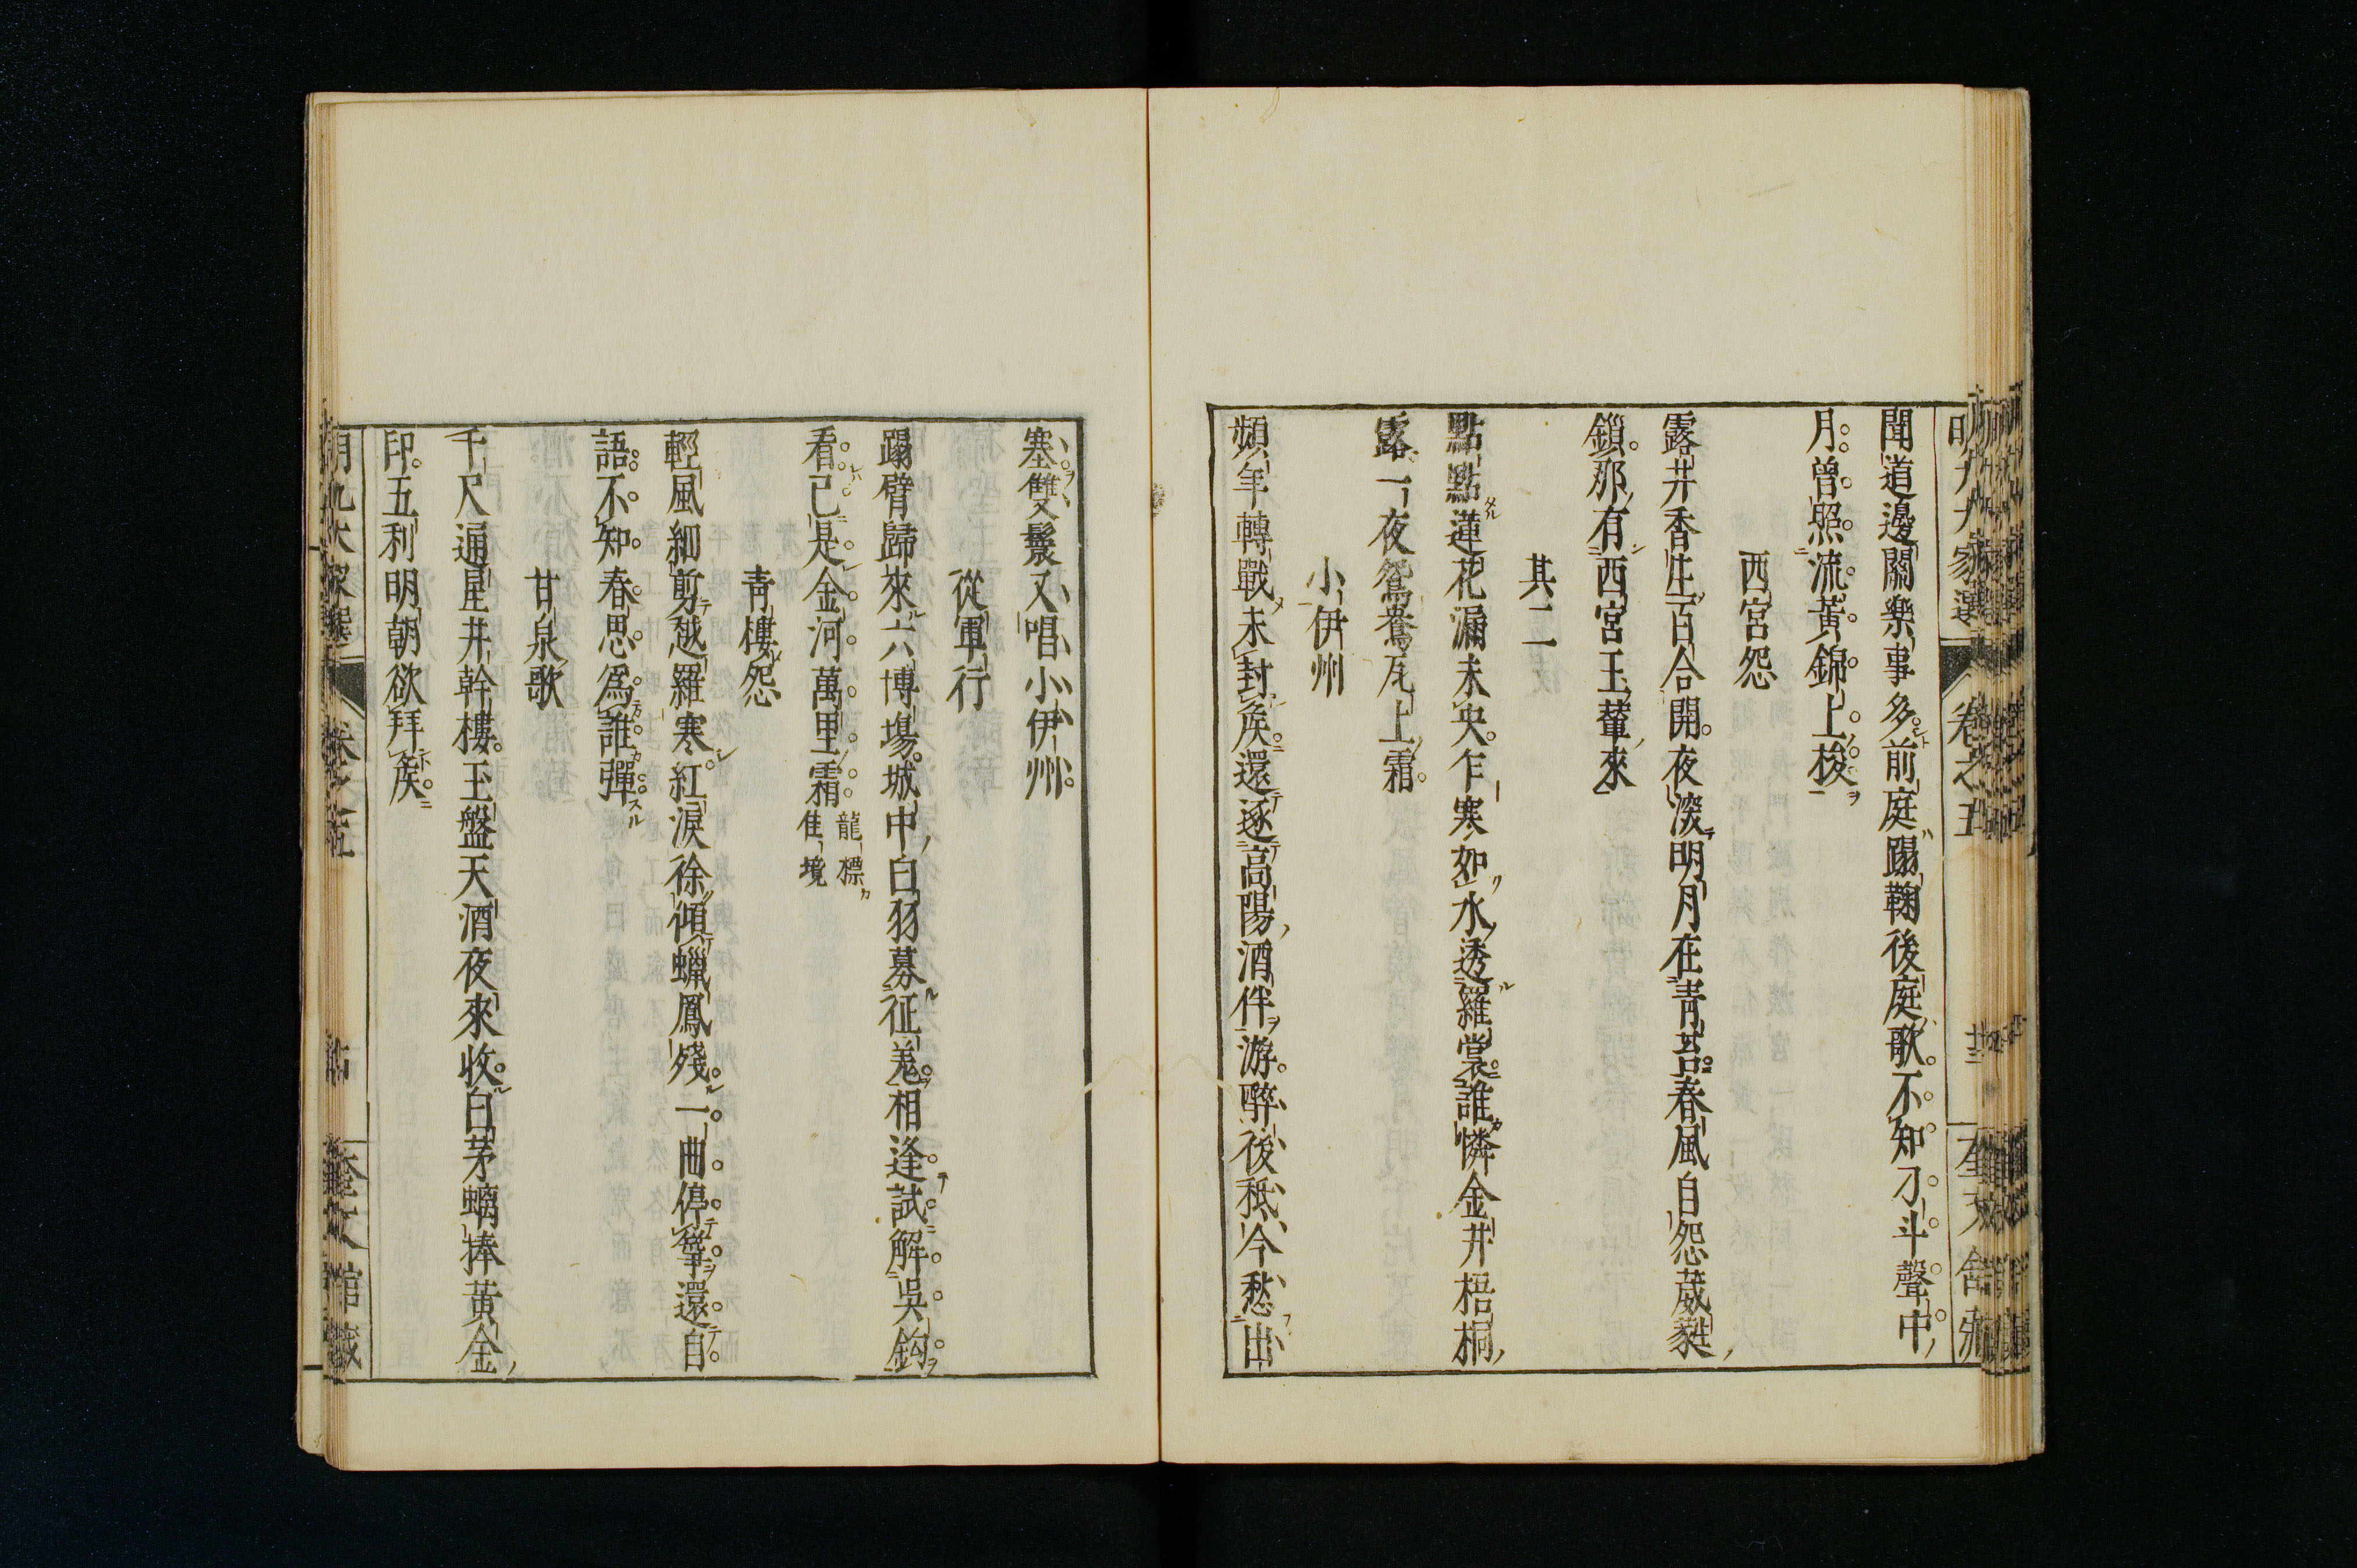 聞道邊關樂事多前庭蹋鞠後庭歌不知刁斗聲中
月曾照流黃錦上梭
西宮怨
露井香生百合開夜深明月在靑苔春風自怨葳蕤
鎖那有西宮玉輦來
其二
點點蓮花漏未央乍寒如水透羅裳誰憐金井梧桐
露一夜鴛鴦瓦上霜
小伊州
頻年轉戰未封矦還逐高陽酒伴游醉後秪今愁出
塞雙鬟又唱小伊州
從軍行
蹋臂歸來六博塲城中白羽募征羌相逢試解吳鉤
看已是金河萬里霜
龍標
佳境
靑樓怨
輕風細剪越羅寒紅淚徐傾蠟鳳殘一曲停箏還自
語不知春思爲誰彈
甘泉歌
千尺通星井幹樓玉盤天酒夜來收白茅螭捧黃金
印五利明朝欲拜矦